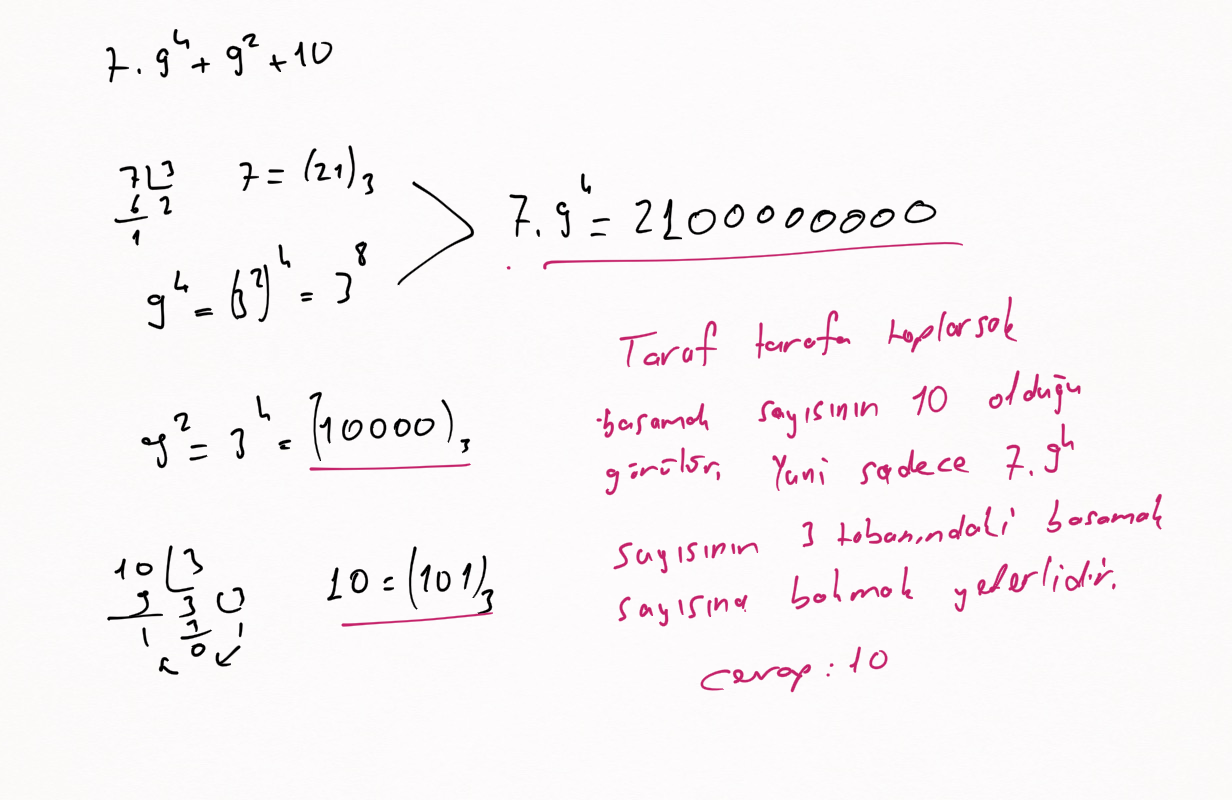 7.9⁴ + 9² + 10
7 | 3
6 2
1
7 = (21)₃
9⁴ = (3²)⁴ = 3⁸
7.9⁴ = 2100000000
9² = 3⁴ = (10000)₃
10 | 3
9 3 | 3
1 3 1
0
10 = (101)₃
Taraf tarafa toplarsak
basamak sayısının 10 olduğu
görülür, Yani sadece 7.9⁴
sayısının 3 tabanındaki basamak
sayısına bakmak yeterlidir.
cevap : 10